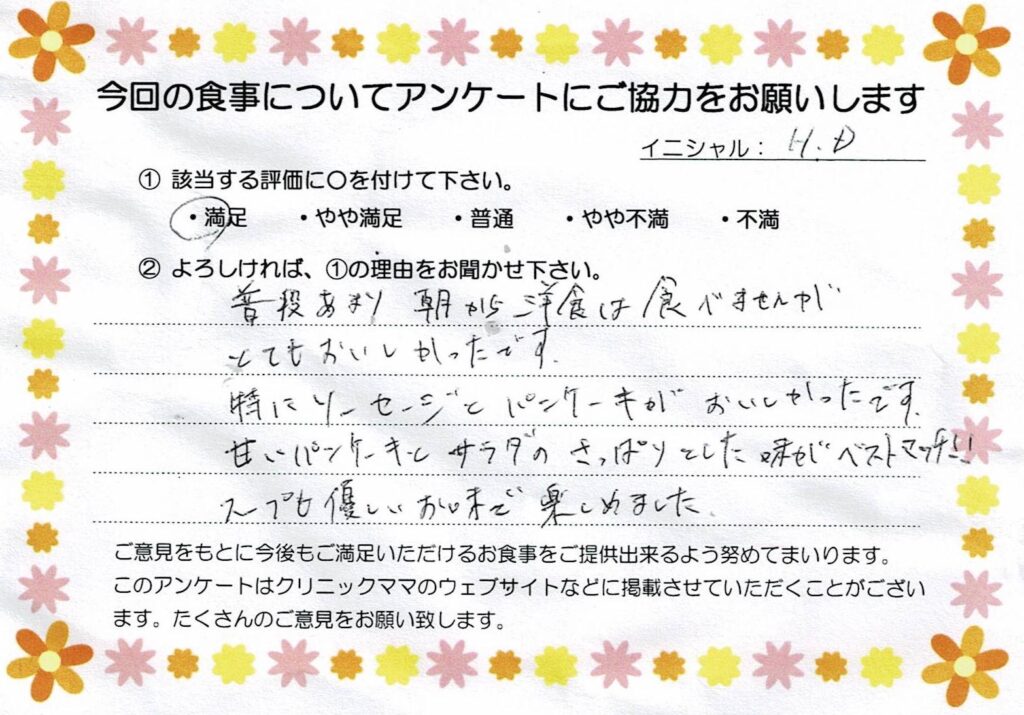 今回の食事についてアンケートにご協力をお願いします
イニシャル： H.D
① 該当する評価に〇を付けて下さい。
・満足 ・やや満足 ・普通 ・やや不満 ・不満
② よろしければ、①の理由をお聞かせ下さい。
普段あまり 朝から洋食は食べませんが
とてもおいしかったです.
特にソーセージとパンケーキが おいしかったです.
甘いパンケーキと サラダの さっぱりとした味がベストマッチ!!
スープも優しいお味で 楽しめました.
ご意見をもとに今後もご満足いただけるお食事をご提供出来るよう努めてまいります。
このアンケートはクリニックママのウェブサイトなどに掲載させていただくことがござい
ます。たくさんのご意見をお願い致します。